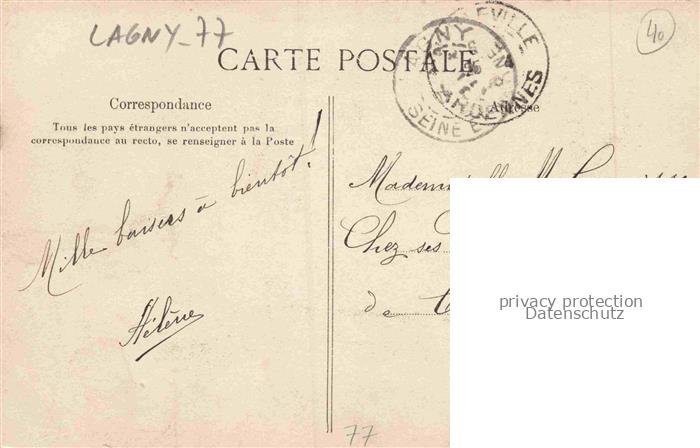 LAGNY-77
40
CARTE POSTALE
SEINE E
ARDENNES
Correspondance
Tous les pays étrangers n'acceptent pas la
correspondance au recto, se renseigner à la Poste
Adresse
Mille baisers à bientôt!
Hélène
Chez ses
de
privacy protection
Datenschutz
77